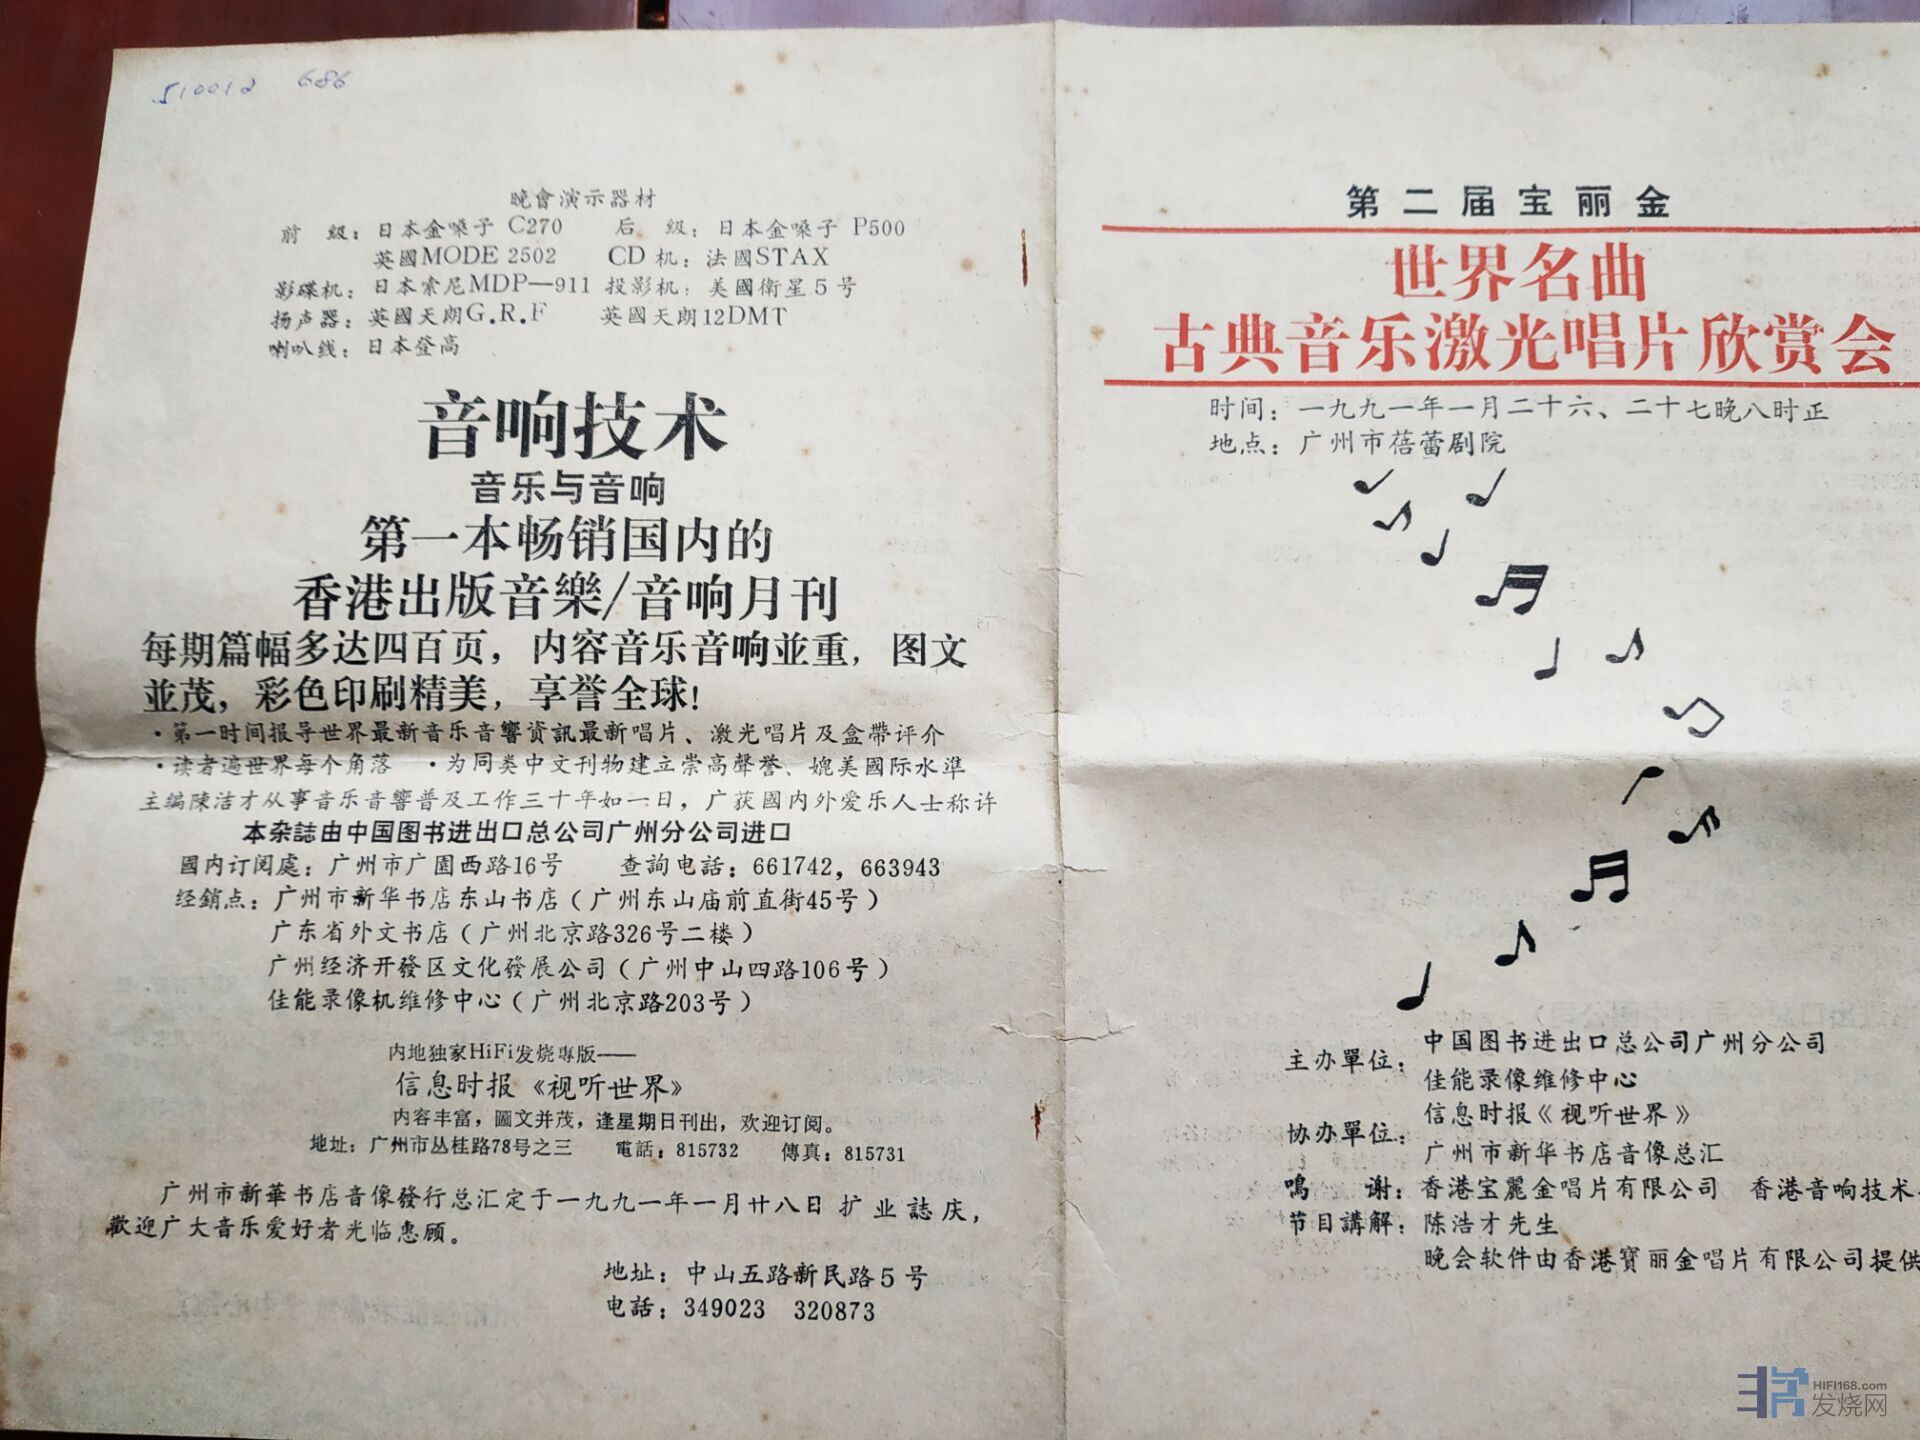 510012 686
晚會演示器材
前 級：日本金嗓子 C270 后 級：日本金嗓子 P500
英國MODE 2502 CD 机：法國STAX
影碟机：日本索尼MDP—911 投影机：美國衛星5号
扬声器：英國天朗G.R.F 英國天朗12DMT
喇叭线：日本登高
音响技术
音乐与音响
第一本畅销国内的
香港出版音樂/音响月刊
每期篇幅多达四百页，内容音乐音响並重，图文
並茂，彩色印刷精美，享誉全球！
·第一时间报导世界最新音乐音響資訊最新唱片、激光唱片及盒帶评介
·读者遍世界每个角落 ·为同类中文刊物建立崇高聲誉、媲美國际水準
主编陳洁才从事音乐音響普及工作三十年如一日，广获國内外爱乐人士称许
本杂誌由中国图书进出口总公司广州分公司进口
國内订阅處：广州市广園西路16号 查詢电話：661742，663943
经銷点：广州市新华书店东山书店（广州东山庙前直街45号）
广东省外文书店（广州北京路326号二楼）
广州经济开發区文化發展公司（广州中山四路106号）
佳能录像机维修中心（广州北京路203号）
内地独家HiFi发烧專版——
信息时报《视听世界》
内容丰富，圖文并茂，逢星期日刊出，欢迎订阅。
地址：广州市丛桂路78号之三 電話：815732 傳真：815731
广州市新華书店音像發行总汇定于一九九一年一月廿八日扩业誌庆，
歡迎广大音乐爱好者光临惠顾。
地址：中山五路新民路5号
电話：349023 320873
第二届宝丽金
世界名曲
古典音乐激光唱片欣赏会
时间：一九九一年一月二十六、二十七晚八时正
地点：广州市蓓蕾剧院
主办單位：中国图书进出口总公司广州分公司
佳能录像维修中心
信息时报《视听世界》
协办單位：广州市新华书店音像总汇
鳴 谢：香港宝麗金唱片有限公司 香港音响技术
节目講解：陈浩才先生
晚会软件由香港寶丽金唱片有限公司提供
HIFI168.com
发烧网